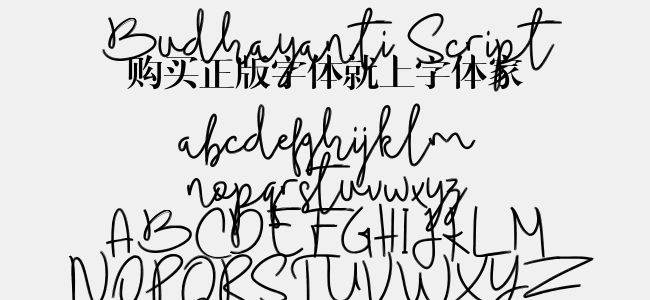 Budhayanti Script
购买正版字体就上字体家
abcdefghijklm
nopqrstuvwxyz
ABCDEFGHIJKLM
NOPQRSTUVWXYZ